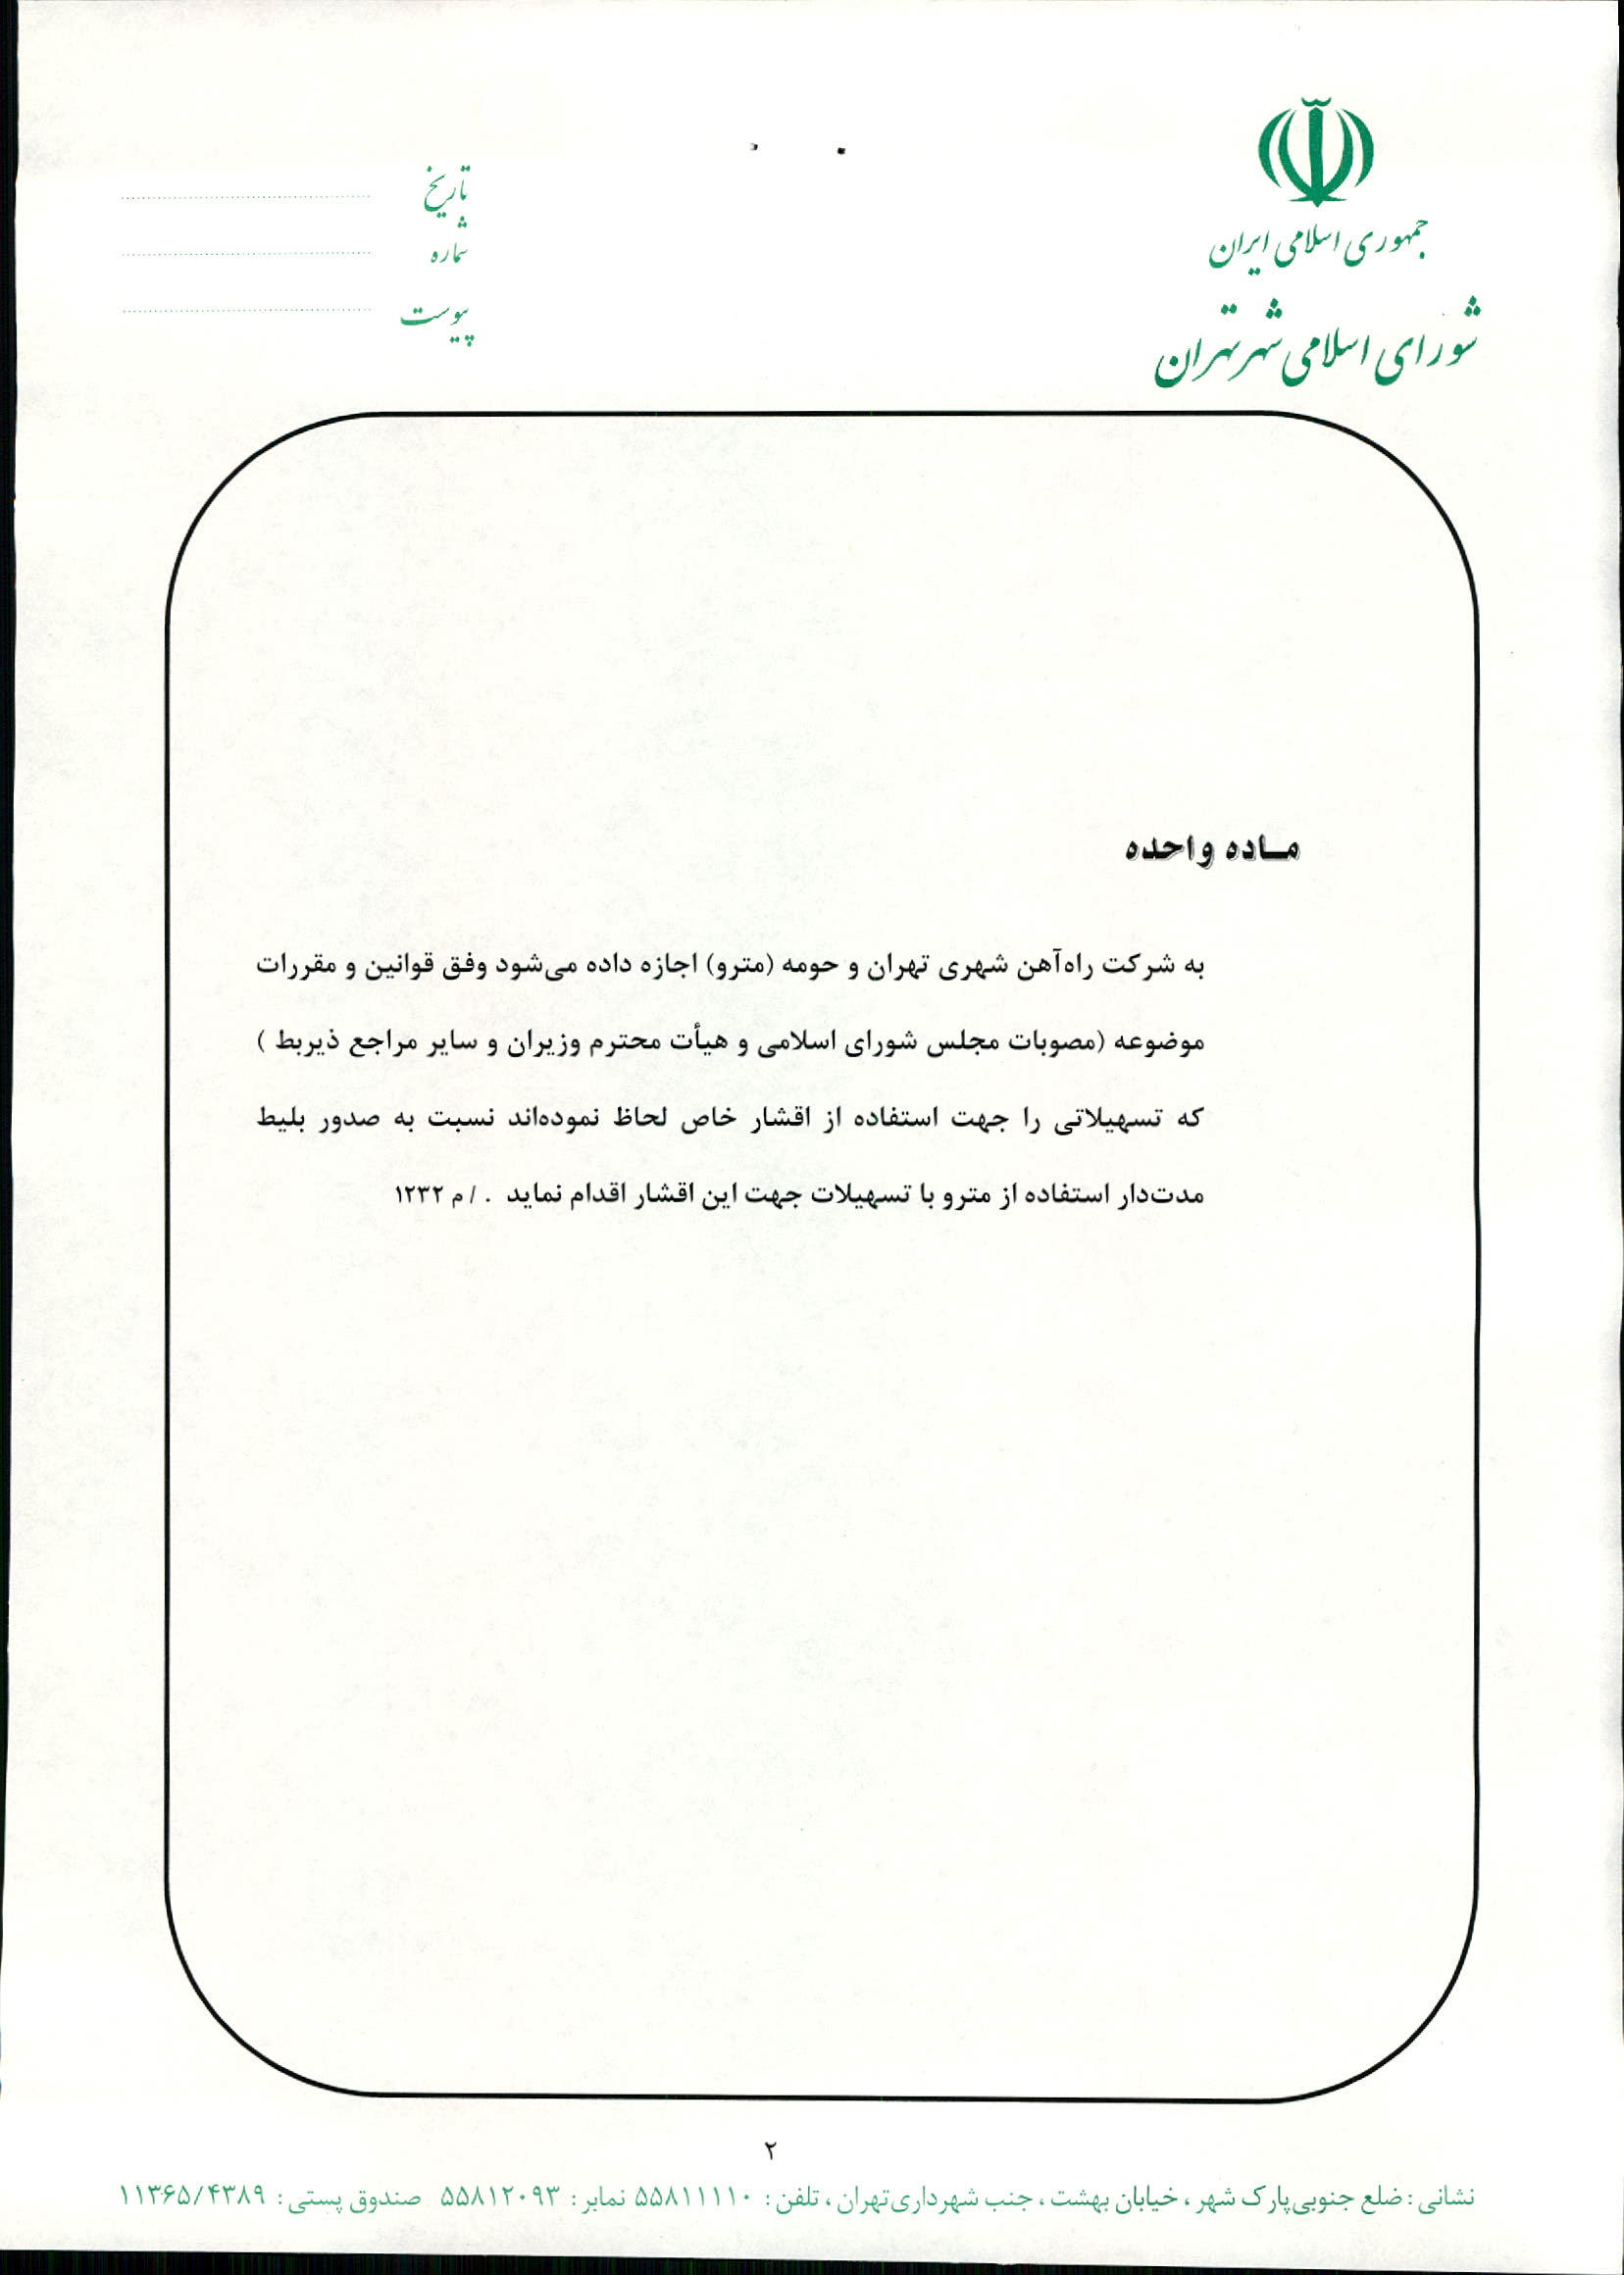 جمهوری اسلامی ایران
شورای اسلامی شهر تهران
تاریخ
شماره
پیوست
ماده واحده
به شرکت راه‌آهن شهری تهران و حومه (مترو) اجازه داده می‌شود وفق قوانین و مقررات
موضوعه (مصوبات مجلس شورای اسلامی و هیأت محترم وزیران و سایر مراجع ذیربط )
که تسهیلاتی را جهت استفاده از اقشار خاص لحاظ نموده‌اند نسبت به صدور بلیط
مدت‌دار استفاده از مترو با تسهیلات جهت این اقشار اقدام نماید . / م ۱۲۳۲
۲
نشانی : ضلع جنوبی پارک شهر ، خیابان بهشت ، جنب شهرداری تهران ، تلفن : ۵۵۸۱۱۱۱۰ نمابر : ۵۵۸۱۲۰۹۳ صندوق پستی : ۱۱۳۶۵/۴۳۸۹